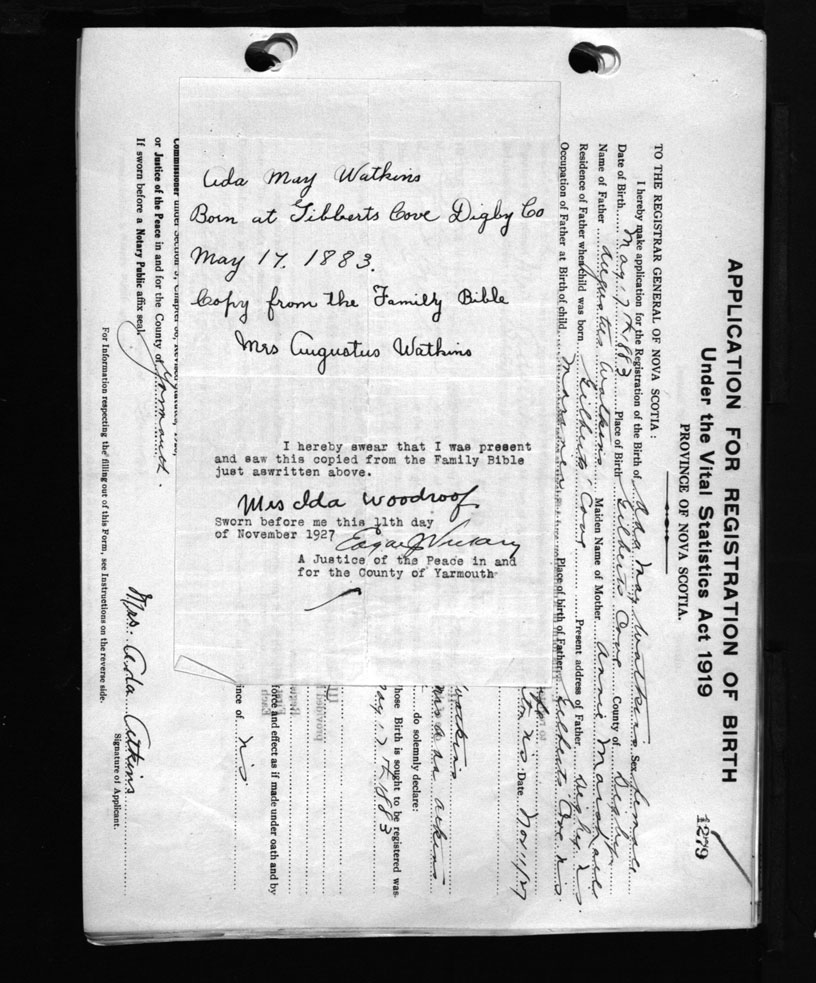 APPLICATION FOR REGISTRATION OF BIRTH
Under the Vital Statistics Act 1919
PROVINCE OF NOVA SCOTIA.
1279
TO THE REGISTRAR GENERAL OF NOVA SCOTIA :
I hereby make application for the Registration of the Birth of Ada May Watkins Sex female
Date of Birth May 17th 1883 Place of Birth Gilberts Cove County of Digby
Name of Father Augustus Watkins Maiden Name of Mother Annie Marshall
Residence of Father when child was born Gilberts Cove Present address of Father Digby N.S.
Occupation of Father at Birth of child Mariner Place of birth of Father Gilberts Cove N.S.
N.S. Date Nov 11/27
Watkins
Atkins
do solemnly declare:
whose Birth is sought to be registered was
May 17th 1883
force and effect as if made under oath and by
ince of N.S.
Commissioner under Section
or Justice of the Peace in and for the County of Yarmouth.
If sworn before a Notary Public affix seal.
Mrs. Ada Atkins
Signature of Applicant.
For Information respecting the filling out of this Form, see Instructions on the reverse side.
Ada May Watkins
Born at Gibberts Cove Digby Co
May 17. 1883.
Copy from the Family Bible
Mrs Augustus Watkins
I hereby swear that I was present
and saw this copied from the Family Bible
just aswritten above.
Mrs Ida Woodroof
Sworn before me this 11th day
of November 1927
A Justice of the Peace in and
for the County of Yarmouth